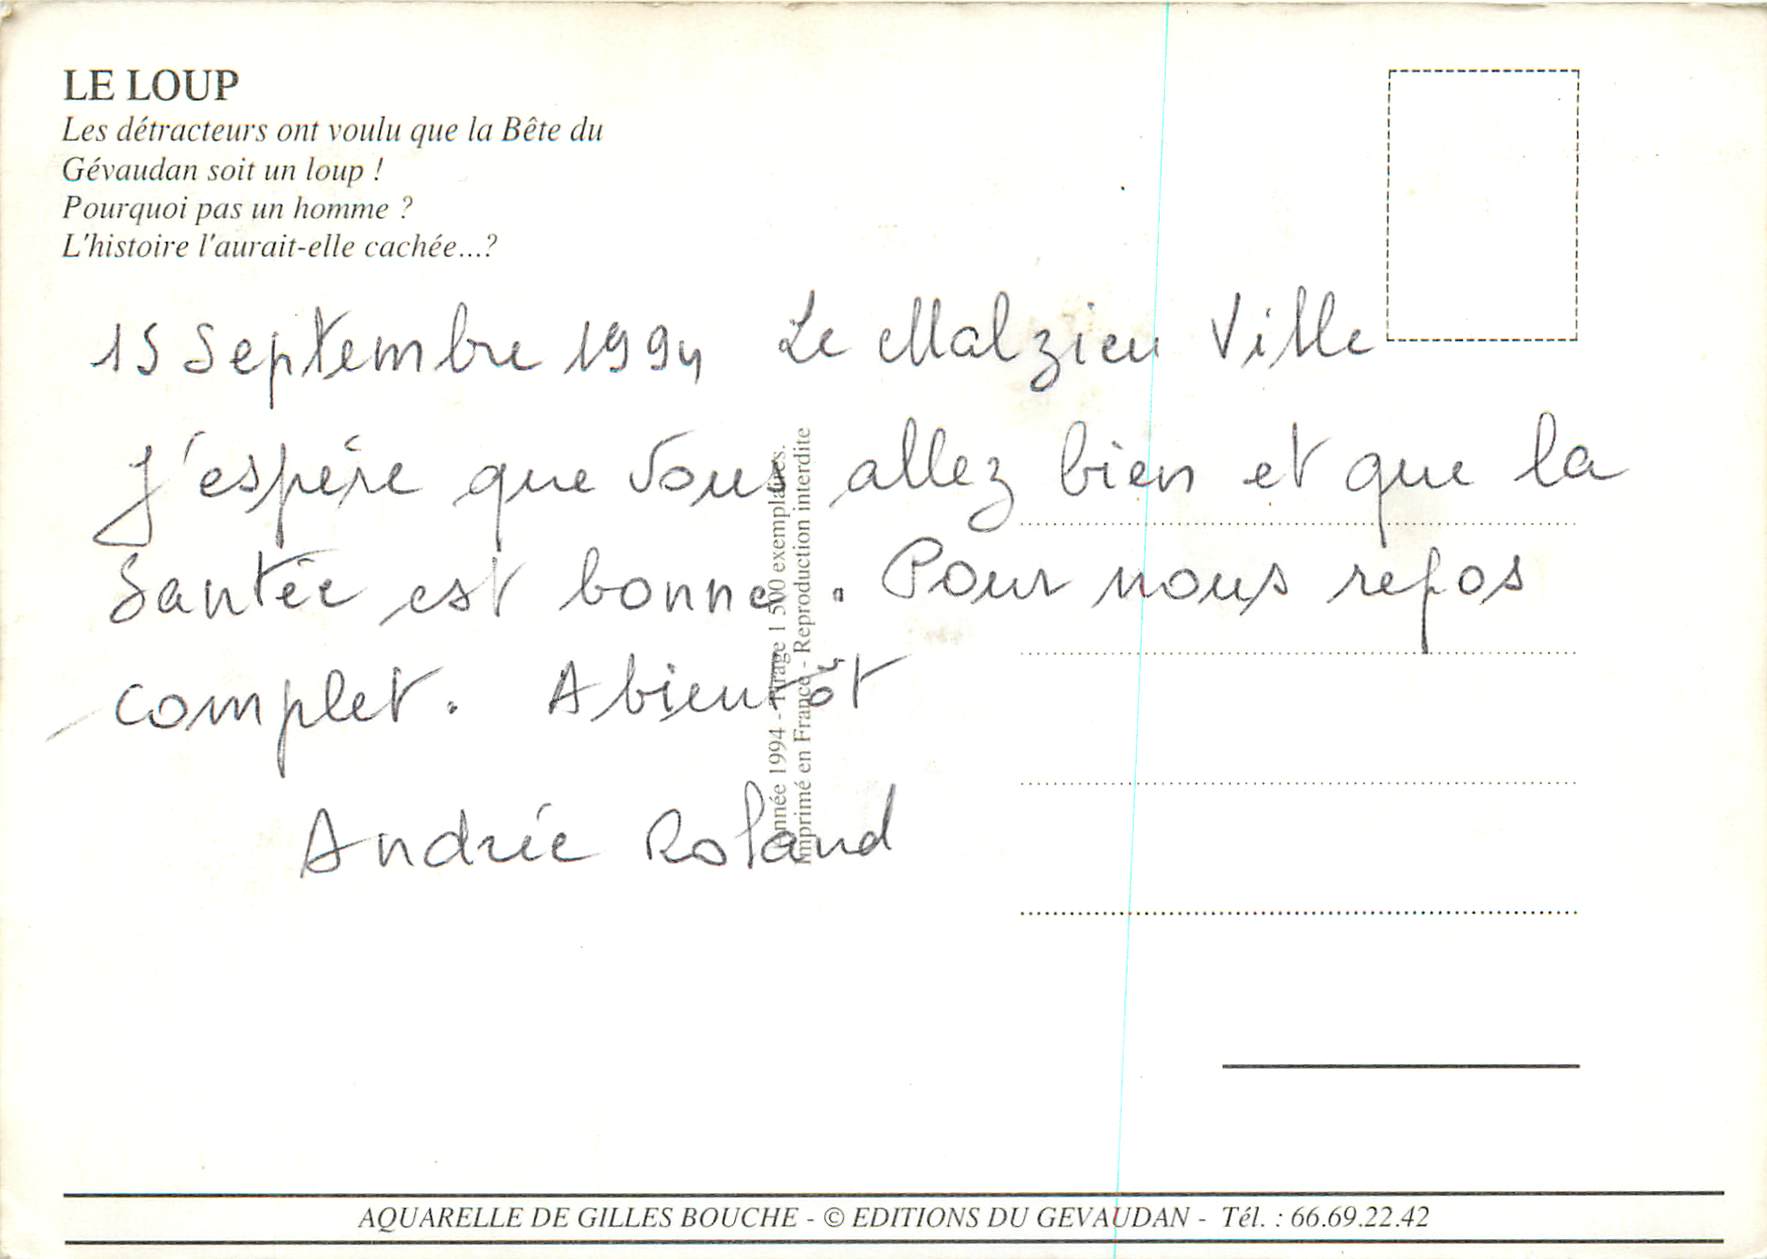 LE LOUP
Les détracteurs ont voulu que la Bête du
Gévaudan soit un loup !
Pourquoi pas un homme ?
L'histoire l'aurait-elle cachée...?
15 Septembre 1994 Le Malzieu Ville
J'espére que vous allez bien et que la
Santée est bonne. Pour nous repos
complet. A bientôt
Andrée Roland
Année 1994 - Tirage 1 500 exemplaires.
Imprimé en France - Reproduction interdite
AQUARELLE DE GILLES BOUCHE - © EDITIONS DU GEVAUDAN - Tél. : 66.69.22.42